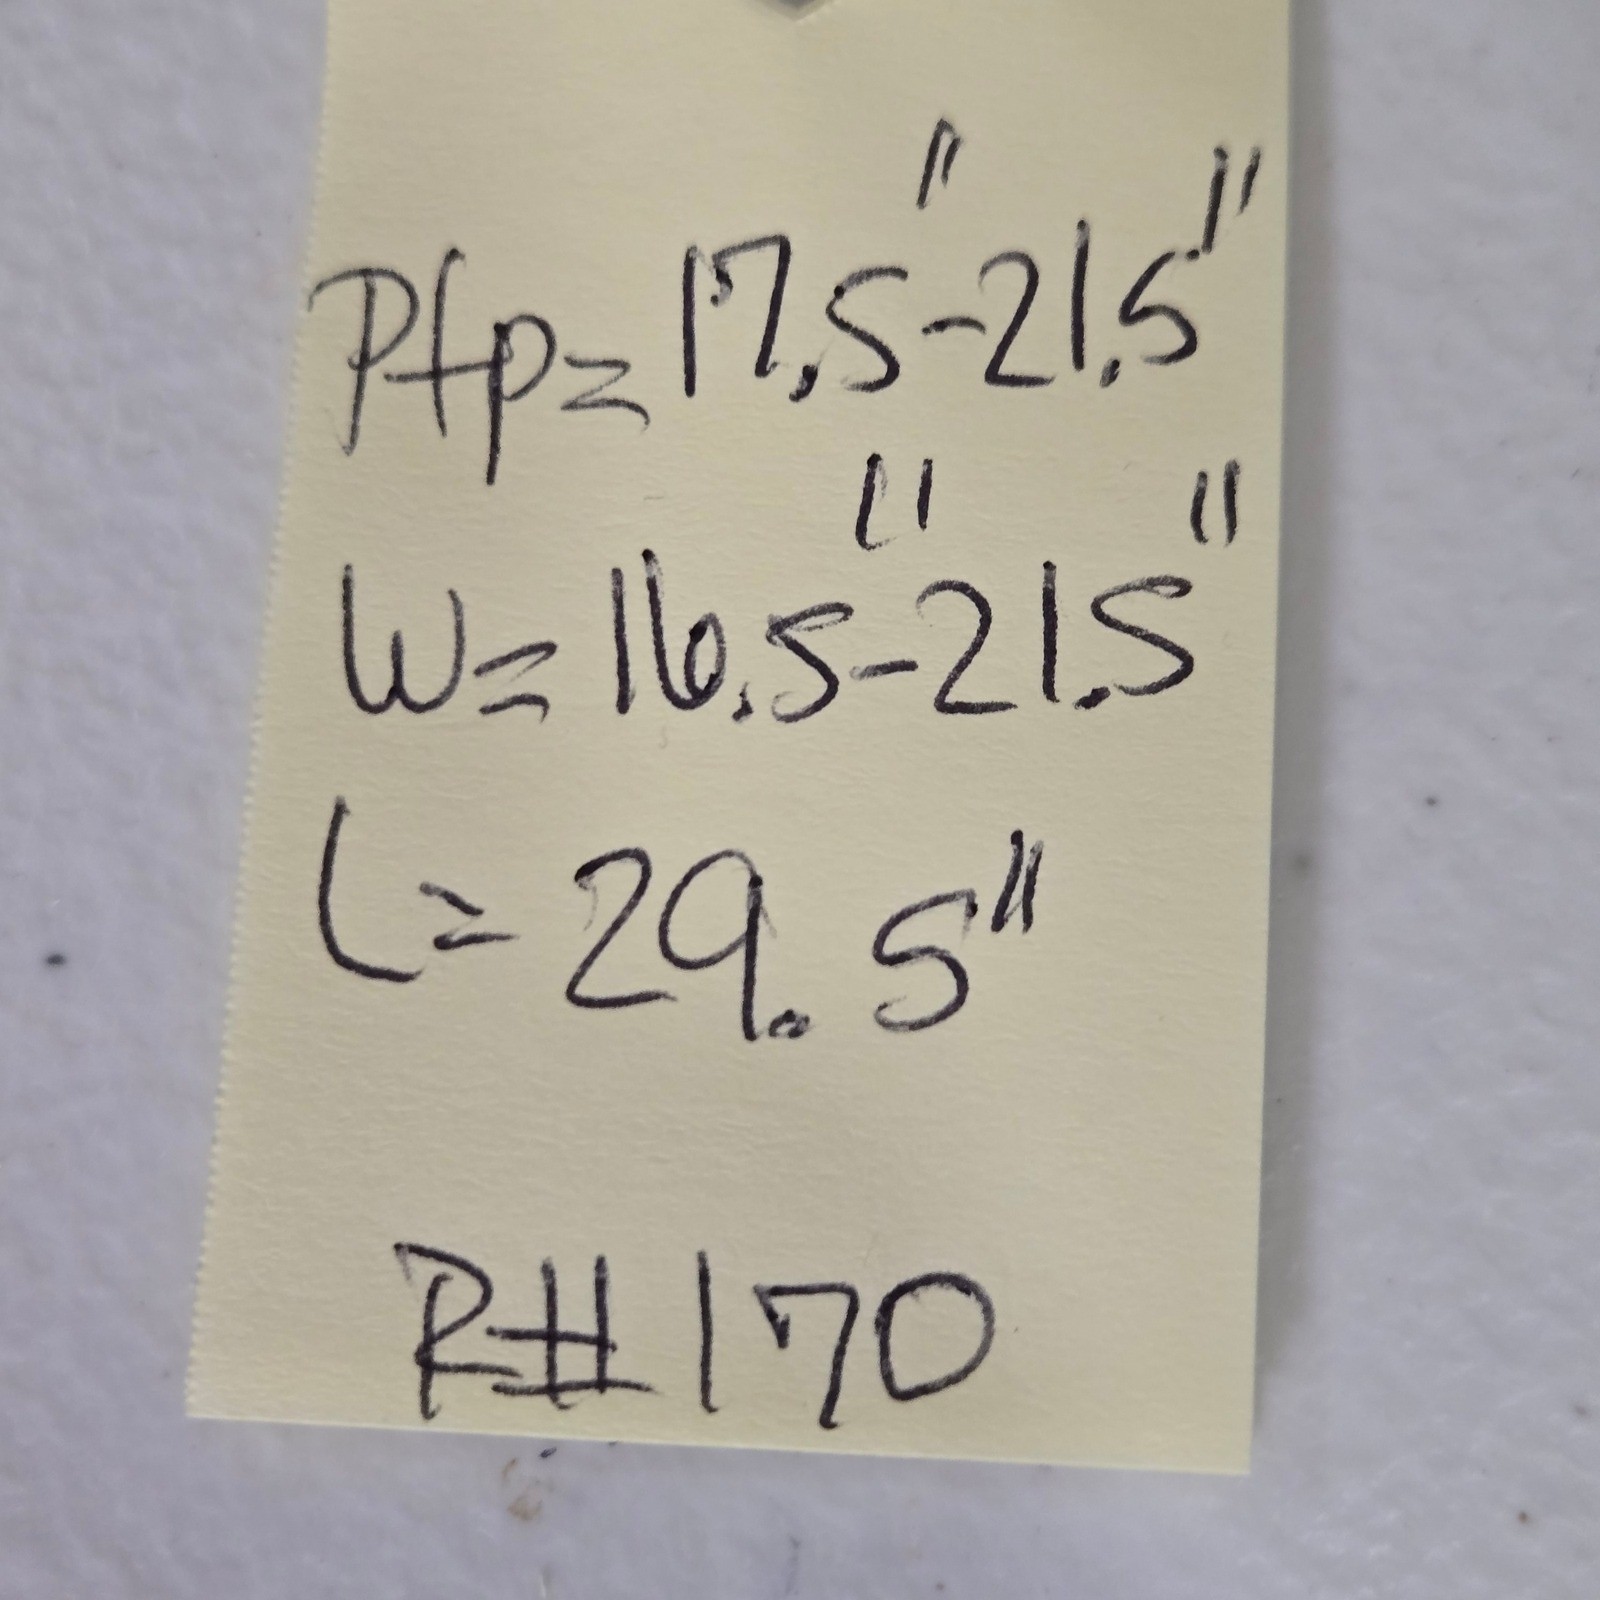 Ptp= 17.5"-21.5"
W= 16.5"-21.5"
L= 29.5"
R# 170